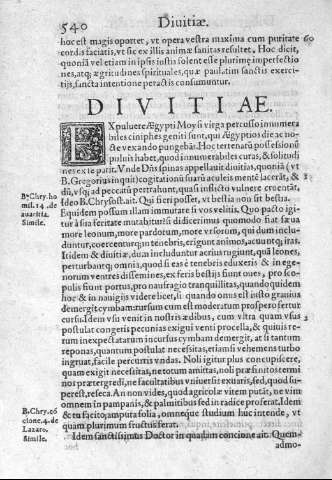 540
Diuitiæ.
hoc est magis oportet, vt opera vestra maxima cum puritate
60
cordis faciatis, vt sic ex illis animæ sanitas resultet. Hoc dicit,
quoniā vel etiam in ipsis iustis solent esse plurimę imperfectio
nes, atq; ægritudines spirituales, quæ paulatim sanctis exerci-
tijs, sancta intentione peractis consumuntur.
DIVITIAE.
EXpuluere Ægypti Moysi virga percusso innumera
biles ciniphes geniti sunt, qui Ægyptios die ac no-
cte vexando pungebāt. Hoc terrenarū possessionū
puluis habet, quod innumerabiles curas, & solitudi
nes ex se parit. Vnde Dn̄s spinas appellauit diuitias, quoniā (vt
B. Gregorius inquit) cogitationū suarū aculeis mentē lacerāt, &
dū, vsq; ad peccatū pertrahunt, quasi inflicto vulnere cruentāt.
Ideo B. Chrysost. ait. Qui fieri posset, vt bestia non sit bestia.
B. Chry. ho
mil. 14. de
auaritia.
Simile.
Equidem possum illam immutare si vos velitis. Quo pacto igi-
tur à sua feritate mutabitur si didicerimus quomodo fiat sæua
more leonum, more pardorum, more vrsorum, qui dum inclu-
duntur, coercentur q; in tenebris, erigunt animos, acuunt q, iras.
Itidem & diuitiæ, dum includuntur acrius rugiunt, quā leones,
perturbant q; omnia, quod si eas è tenebris eduxeris & in ege-
norum ventres dissemines, ex feris bestijs fiunt oues, pro sco-
pulis fiunt portus, pro naufragio tranquillitas, quandoquidem
hoc & in nauigijs videre licet, si quando onus est iusto grauius
demergit cymbam: rursum cum est moderatum prospero fertur
cursu. Idem vsu venit in nostris ædibus, cum vltra quam vsus
3
postulat congeris pecunias exigui venti procella, & quiuis re-
rum inexpectatarum incursus cymbam demergit, at si tantum
reponas, quantum postulat necessitas, etiamsi vehemens turbo
ingruat, facile percurris vndas. Noli igitur plus concupiscere,
quam exigit necessitas, ne totum amittas, noli præfinitos termi
nos prætergredi, ne facultatibus vniuersis exuaris, sed, quod su-
perest, reseca. An non vides, quod agricolæ vitem putāt, ne vim
omnem in pampanis, & palmitibus sed in radice proferat. Idem
& tu facito, amputa folia, omneque studium huc intende, vt
quam plurimum fructus ferat.
B. Chry. cō
cione. 4. de
Lazaro.
Simile.
Idem sanctissimus Doctor in quadam concione ait. Quem-
admo-